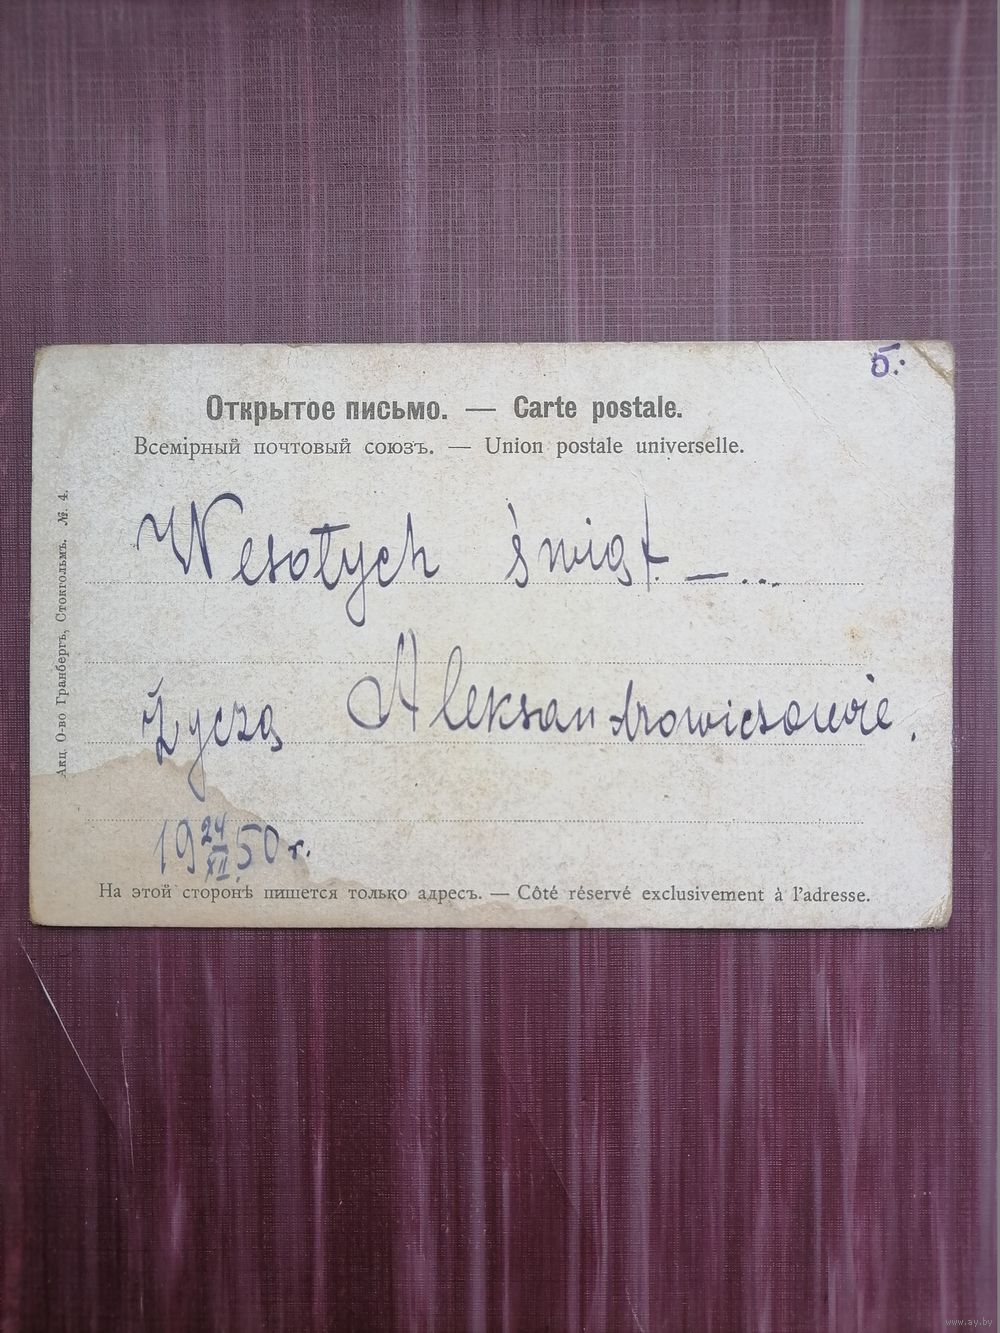 б.:
Открытое письмо. — Carte postale.
Всемірный почтовый союзъ. — Union postale universelle.
Wesołych świąt — ...
Życzą Aleksandrowiczowie.
19 24/XII 50 г.
На этой сторонѣ пишется только адресъ. — Côté réservé exclusivement à l'adresse.
Акц. О-во Гранбергъ, Стокгольмъ. №. 4.
www.ay.by